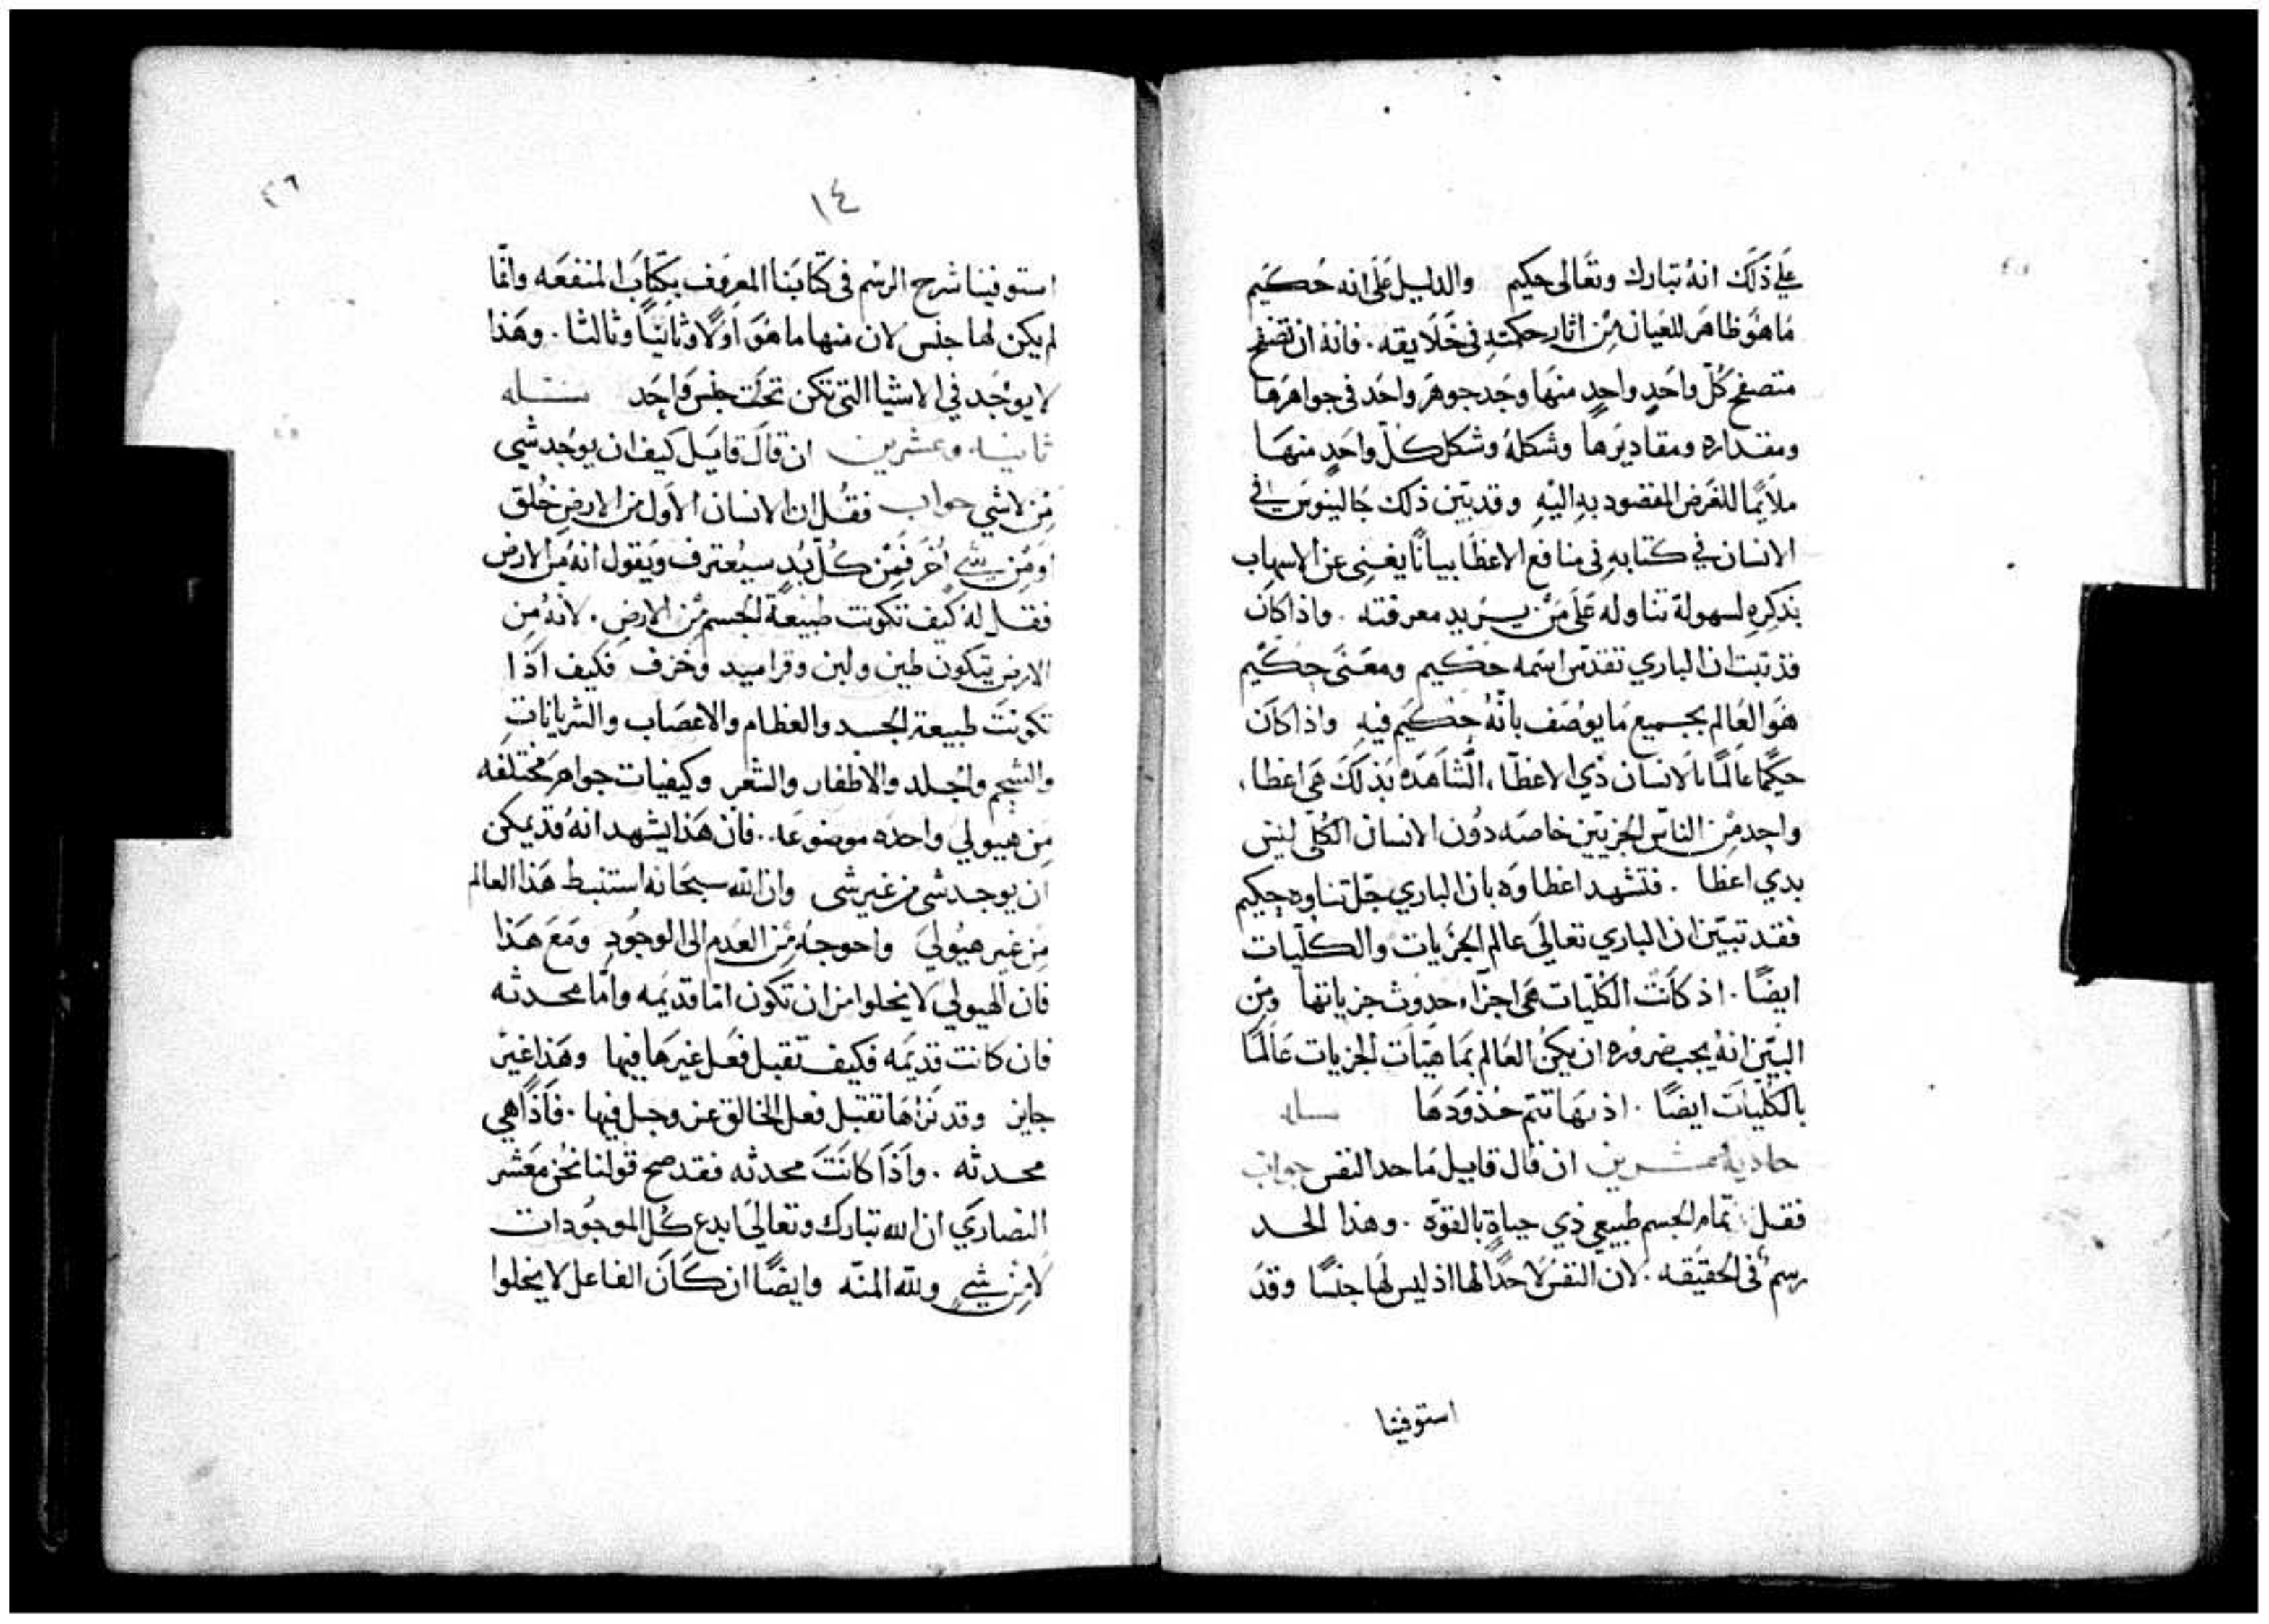 علي ذلك انهُ تبارك وتعالى حكيم والدليل على انه حكيم
ما هو ظاهر للعيان من اثار حكمته في خلايقه . فانه ان تصفح
متصفح كل واحدٍ واحدٍ منها وجد جوهر واحد في جواهرها
ومقداره ومقاديرها وشكلهُ وشكل كلّ واحدٍ منها
ملايمًا للغرض المقصود بهِ اليهِ وقد بيّن ذلك جالينوس في
الانسان في كتابهِ في منافع الاعظا بيانًا يغني عن الاسهاب
بذكرهِ لسهولة تناوله على من يريد معرفته . واذا كان
قد ثبت ان الباري تقدس اسمه حكيم ومعنى حكيم
هو العالم بجميع ما يوصف بانّهُ حكيم فيهِ واذا كان
حكيمًا عالمًا بالانسان ذي الاعظاء الشاهده بذلك هي اعظاء
واحد من الناس الجزيين خاصه دون الانسان الكلّي ليس
بدي اعظا . فتشهد اعظاوه بان الباري جل تناوه حكيم
فقد تبيّن ان الباري تعالى عالم الجزيات والكليات
ايضًا . اذ كانت الكليات هي اجزاء حدوث جزياتها ومن
البيّن انهُ يجب ضروره ان يكن العالم بماهيّات الجزيات عالمًا
بالكليات ايضًا . اذ بها تتم حدودها مسله
حادية عشرين ان قال قاييل ما حد النفس جواب
فقل تمام لجسم طبيعي ذي حياةٍ بالقوّه . وهذا الحد
رسمٌ في الحقيقه . لان النفس لا حدًّا لها اذ ليس لها جنسًا وقد
استوفينا
١٤
٢٦
استوفينا شرح الرسم في كتابنا المعروف بكتاب المنفعه وانّما
لم يكن لها جنس لان منها ما هو اولًا وثانيًا وثالثا . وهذا
لا يوجد في الاشيا التي تكن تحت جنس واحد مسله
ثانيه وعشرين ان قال قايل كيف ان يوجد شي
من لا شي جواب فقل ان الانسان الاول من الارض خُلق
او من شي اخر فمن كل بُد سيعترف ويقول انهُ من الارض
فقل لهُ كيف تكونت طبيعة الجسم من الارض . لانهُ من
الارض يتكون طين ولبن وقراميد وخزف فكيف اذا
تكونت طبيعة الجسد والعظام والاعصاب والشريانات
والشحم والجلد والاظفار والشعر وكيفيات جواهر مختلفه
من هيولي واحده موضوعه . فان هذا يشهد انهُ قد يمكن
ان يوجد شي من غير شي وان الله سبحانه استنبط هذا العالم
من غير هيولي واحوجهُ من العدم الى الوجود ومع هذا
فان الهيولي لا يخلوا من ان تكون امّا قديمه وامّا محدثه
فان كانت قديمه فكيف تقبل فعل غيرها فيها وهذا غير
جايز وقد نراها تقبل فعل الخالق عز وجل فيها . فاذًا هي
محدثه . واذا كانت محدثه فقد صح قولنا نحن معشر
النصاري ان الله تبارك وتعالي ابدع كل الموجودات
لا من شي ولله المنّه وايضًا ان كان الفاعل لا يخلوا